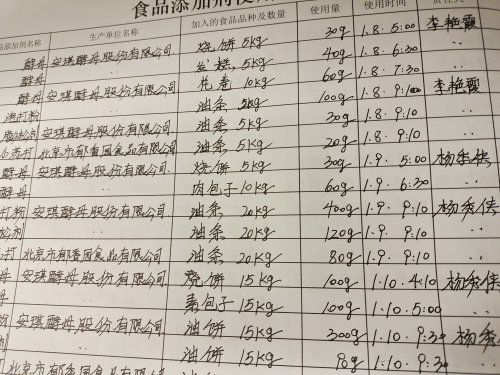 食品添加剂使用
品添加剂名称 生产单位名称 加入的食品品种及数量 使用量 使用时间
酵母 安琪酵母股份有限公司 烧饼 5kg 30g 1.8.5:00 李艳霞
酵母 〃 发糕 5kg 40g 1.8.6:30 〃
酵母 安琪酵母股份有限公司 花卷 10kg 60g 1.8.7:30
泡打粉 安琪酵母股份有限公司 油条 5kg 100g 1.8.9:10 李艳霞
安琪酵母股份有限公司 油条 5kg 30g 1.8.9:10
北京市郁香园食品有限公司 油条 5kg 20g 1.8.9:10
酵母 安琪酵母股份有限公司 烧饼 5kg 30g 1.9.5:00
酵母 〃 肉包子 10kg 60g 1.9.6:30 〃
打粉 安琪酵母股份有限公司 油条 20kg 400g 1.9.9:10
油条 20kg 120g 1.9.9:10 〃
打 北京市郁香园食品有限公司 油条 20kg 80g 1.9.9:10 〃
母 安琪酵母股份有限公司 烧饼 15kg 100g 1.10.4:10
母 〃 素包子 15kg 100g 1.10.5:00 〃
安琪酵母股份有限公司 油饼 15kg 300g 1.10.9:30
油饼 15kg 90g 1.10.9:30 〃
北京市郁香园食品有限公司